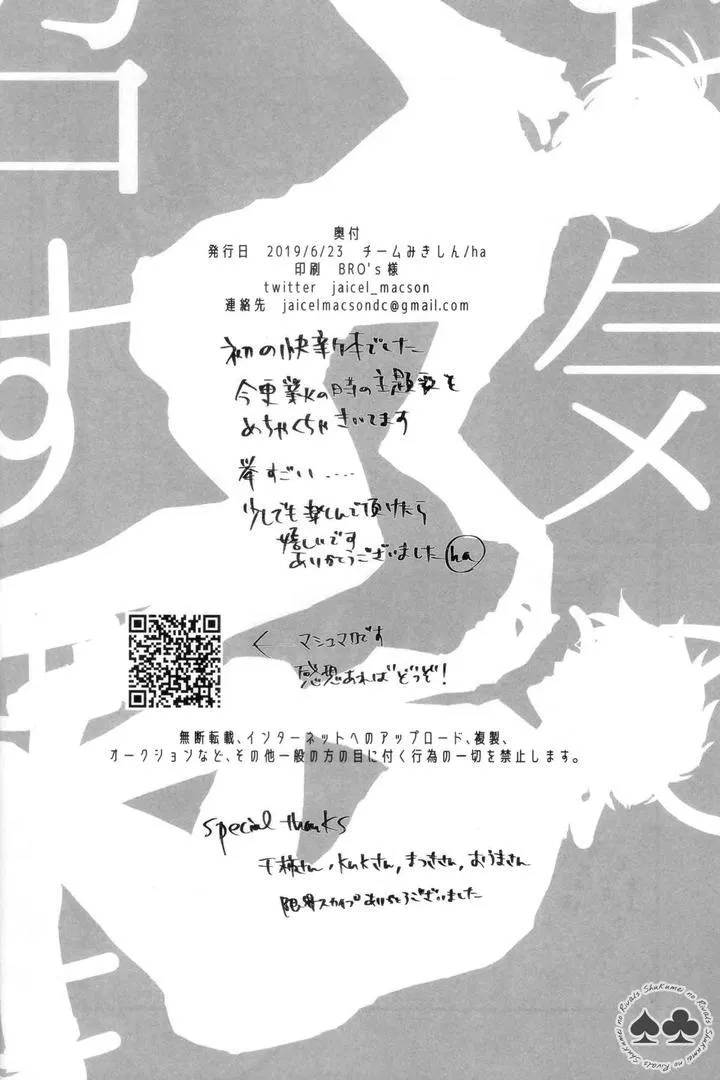 奥付
発行日 2019/6/23 チームみきしん/ha
印刷 BRO's様
twitter jaicel_macson
連絡先 jaicelmacsondc@gmail.com
初の快新本でした
今更業火の時の主題歌を
めちゃくちゃきいてます
拳すごい....
少しでも楽しんで頂けたら
嬉しいです
ありがとうございました ha
← マシュマロです
感想あればどうぞ!
無断転載、インターネットへのアップロード、複製、
オークションなど、その他一般の方の目に付く行為の一切を禁止します。
special thanks
千柿さん、KUKさん、まつきさん、おうまさん
限界スカイプありがとうございました
Shukumei no Rivals
Shukumei no Rivals